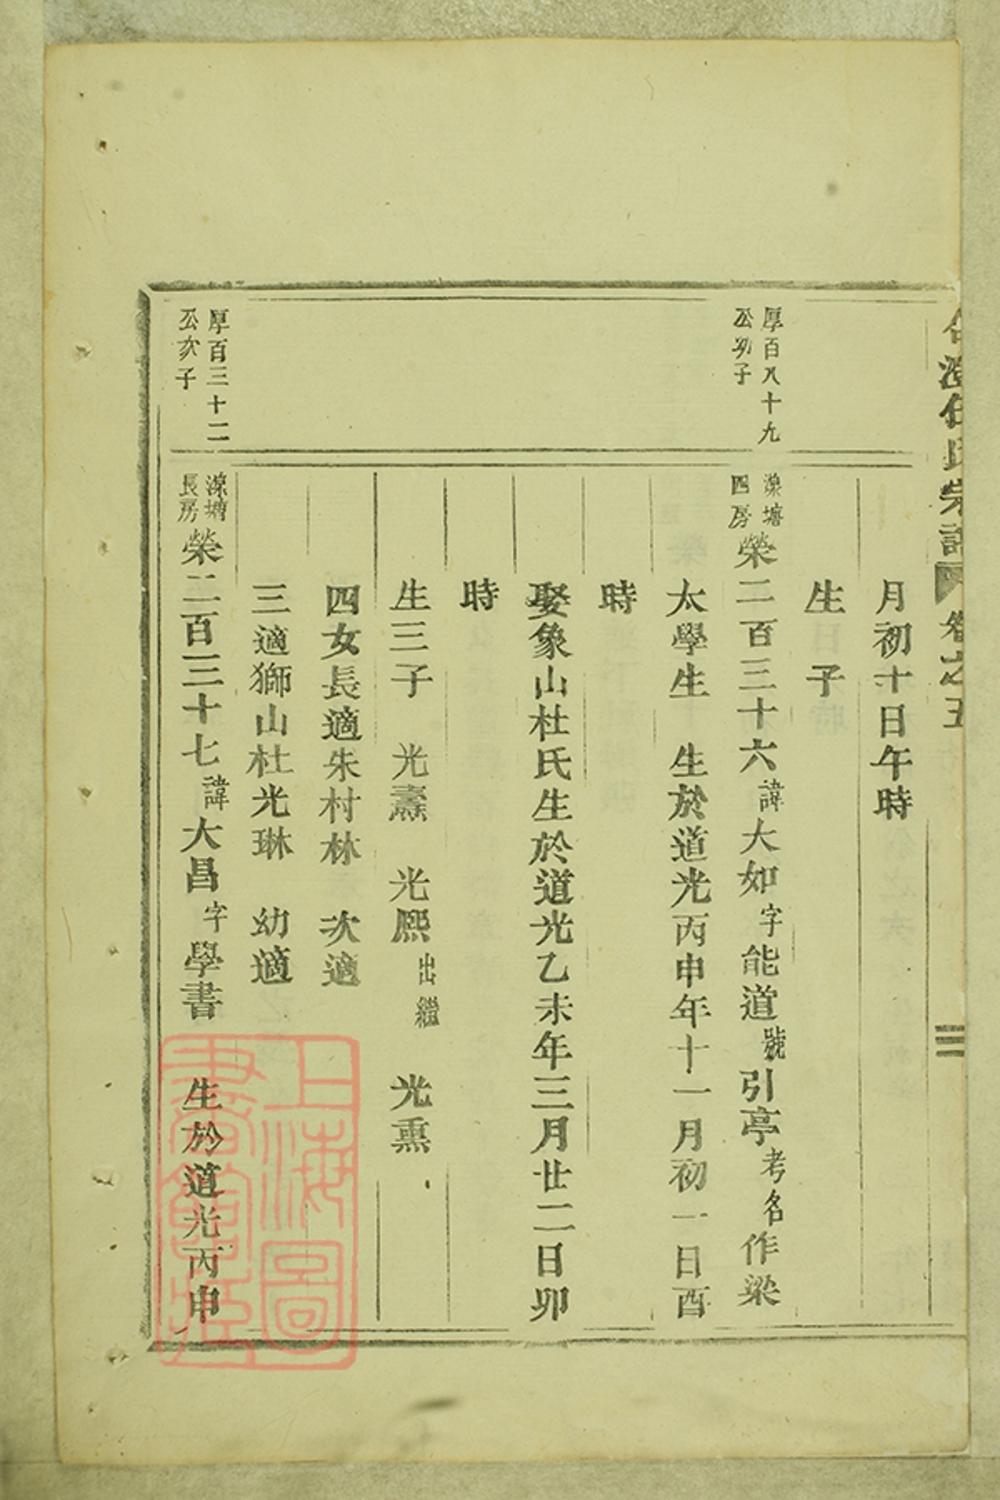 澄任氏宗譜 卷之五
月初十日午時
生子
厚百八十九
公次子
濠塘
四房
榮二百三十六諱大如字能道號引亭考名作梁
太學生 生於道光丙申年十一月初一日酉
時
娶象山杜氏生於道光乙未年三月廿二日卯
時
生三子 光燾 光熙出繼 光熏
四女長適朱村林 次適
三適獅山杜光琳 幼適
厚百三十二
公次子
濠塘
長房
榮二百三十七諱大昌字學書 生於道光丙申
上海圖
書館藏